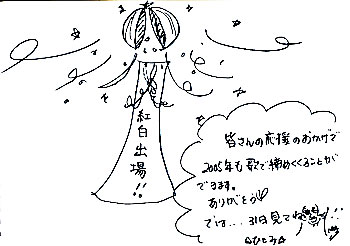 紅白出場!!
皆さんの応援のおかげで
2005年も歌で締めくくることが
できます。
ありがとう♡
では…31日見てね
☆ひとみ☆